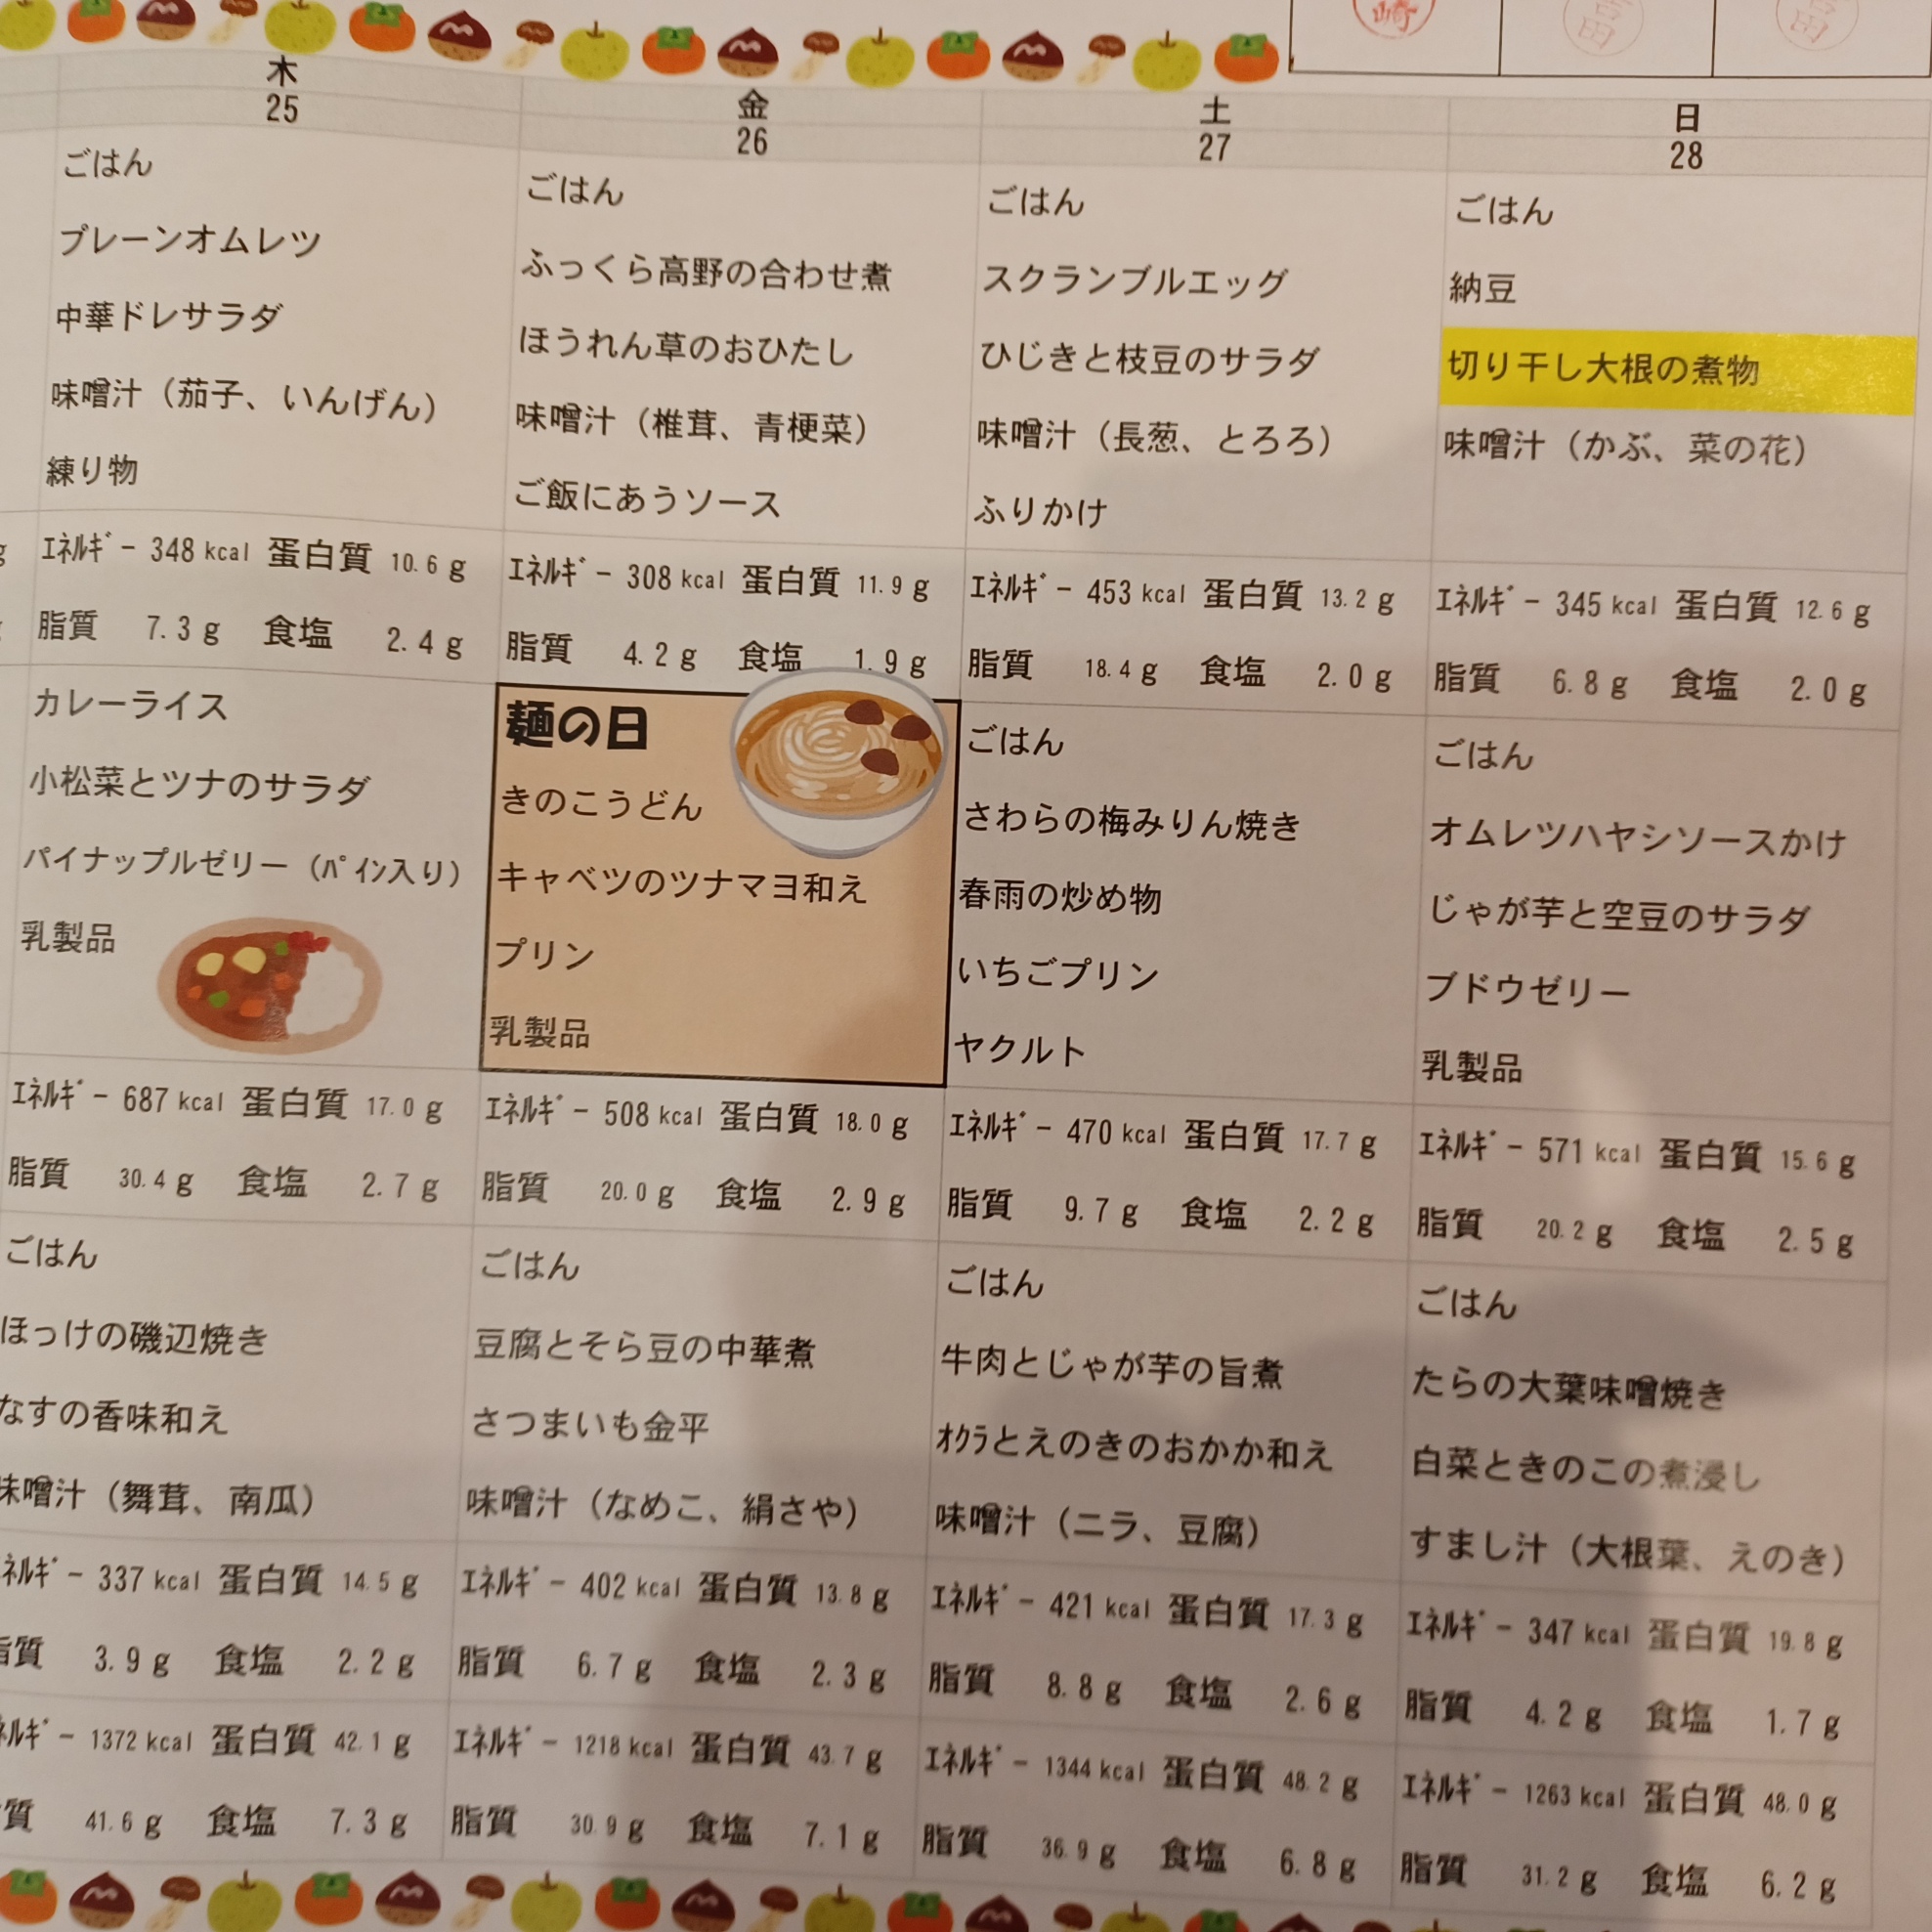 崎
吉田
吉田
木
25
ごはん
プレーンオムレツ
中華ドレサラダ
味噌汁（茄子、いんげん）
練り物
ｴﾈﾙｷﾞｰ 348 kcal 蛋白質 10.6 g
脂質 7.3 g 食塩 2.4 g
カレーライス
小松菜とツナのサラダ
パイナップルゼリー（ﾊﾟｲﾝ入り）
乳製品
ｴﾈﾙｷﾞｰ 687 kcal 蛋白質 17.0 g
脂質 30.4 g 食塩 2.7 g
ごはん
ほっけの磯辺焼き
なすの香味和え
味噌汁（舞茸、南瓜）
ﾈﾙｷﾞｰ 337 kcal 蛋白質 14.5 g
脂質 3.9 g 食塩 2.2 g
ﾈﾙｷﾞｰ 1372 kcal 蛋白質 42.1 g
質 41.6 g 食塩 7.3 g
金
26
ごはん
ふっくら高野の合わせ煮
ほうれん草のおひたし
味噌汁（椎茸、青梗菜）
ご飯にあうソース
ｴﾈﾙｷﾞｰ 308 kcal 蛋白質 11.9 g
脂質 4.2 g 食塩 1.9 g
麺の日
きのこうどん
キャベツのツナマヨ和え
プリン
乳製品
ｴﾈﾙｷﾞｰ 508 kcal 蛋白質 18.0 g
脂質 20.0 g 食塩 2.9 g
ごはん
豆腐とそら豆の中華煮
さつまいも金平
味噌汁（なめこ、絹さや）
ｴﾈﾙｷﾞｰ 402 kcal 蛋白質 13.8 g
脂質 6.7 g 食塩 2.3 g
ｴﾈﾙｷﾞｰ 1218 kcal 蛋白質 43.7 g
脂質 30.9 g 食塩 7.1 g
土
27
ごはん
スクランブルエッグ
ひじきと枝豆のサラダ
味噌汁（長葱、とろろ）
ふりかけ
ｴﾈﾙｷﾞｰ 453 kcal 蛋白質 13.2 g
脂質 18.4 g 食塩 2.0 g
ごはん
さわらの梅みりん焼き
春雨の炒め物
いちごプリン
ヤクルト
ｴﾈﾙｷﾞｰ 470 kcal 蛋白質 17.7 g
脂質 9.7 g 食塩 2.2 g
ごはん
牛肉とじゃが芋の旨煮
ｵｸﾗとえのきのおかか和え
味噌汁（ニラ、豆腐）
ｴﾈﾙｷﾞｰ 421 kcal 蛋白質 17.3 g
脂質 8.8 g 食塩 2.6 g
ｴﾈﾙｷﾞｰ 1344 kcal 蛋白質 48.2 g
脂質 36.9 g 食塩 6.8 g
日
28
ごはん
納豆
切り干し大根の煮物
味噌汁（かぶ、菜の花）
ｴﾈﾙｷﾞｰ 345 kcal 蛋白質 12.6 g
脂質 6.8 g 食塩 2.0 g
ごはん
オムレツハヤシソースかけ
じゃが芋と空豆のサラダ
ブドウゼリー
乳製品
ｴﾈﾙｷﾞｰ 571 kcal 蛋白質 15.6 g
脂質 20.2 g 食塩 2.5 g
ごはん
たらの大葉味噌焼き
白菜ときのこの煮浸し
すまし汁（大根葉、えのき）
ｴﾈﾙｷﾞｰ 347 kcal 蛋白質 19.8 g
脂質 4.2 g 食塩 1.7 g
ｴﾈﾙｷﾞｰ 1263 kcal 蛋白質 48.0 g
脂質 31.2 g 食塩 6.2 g